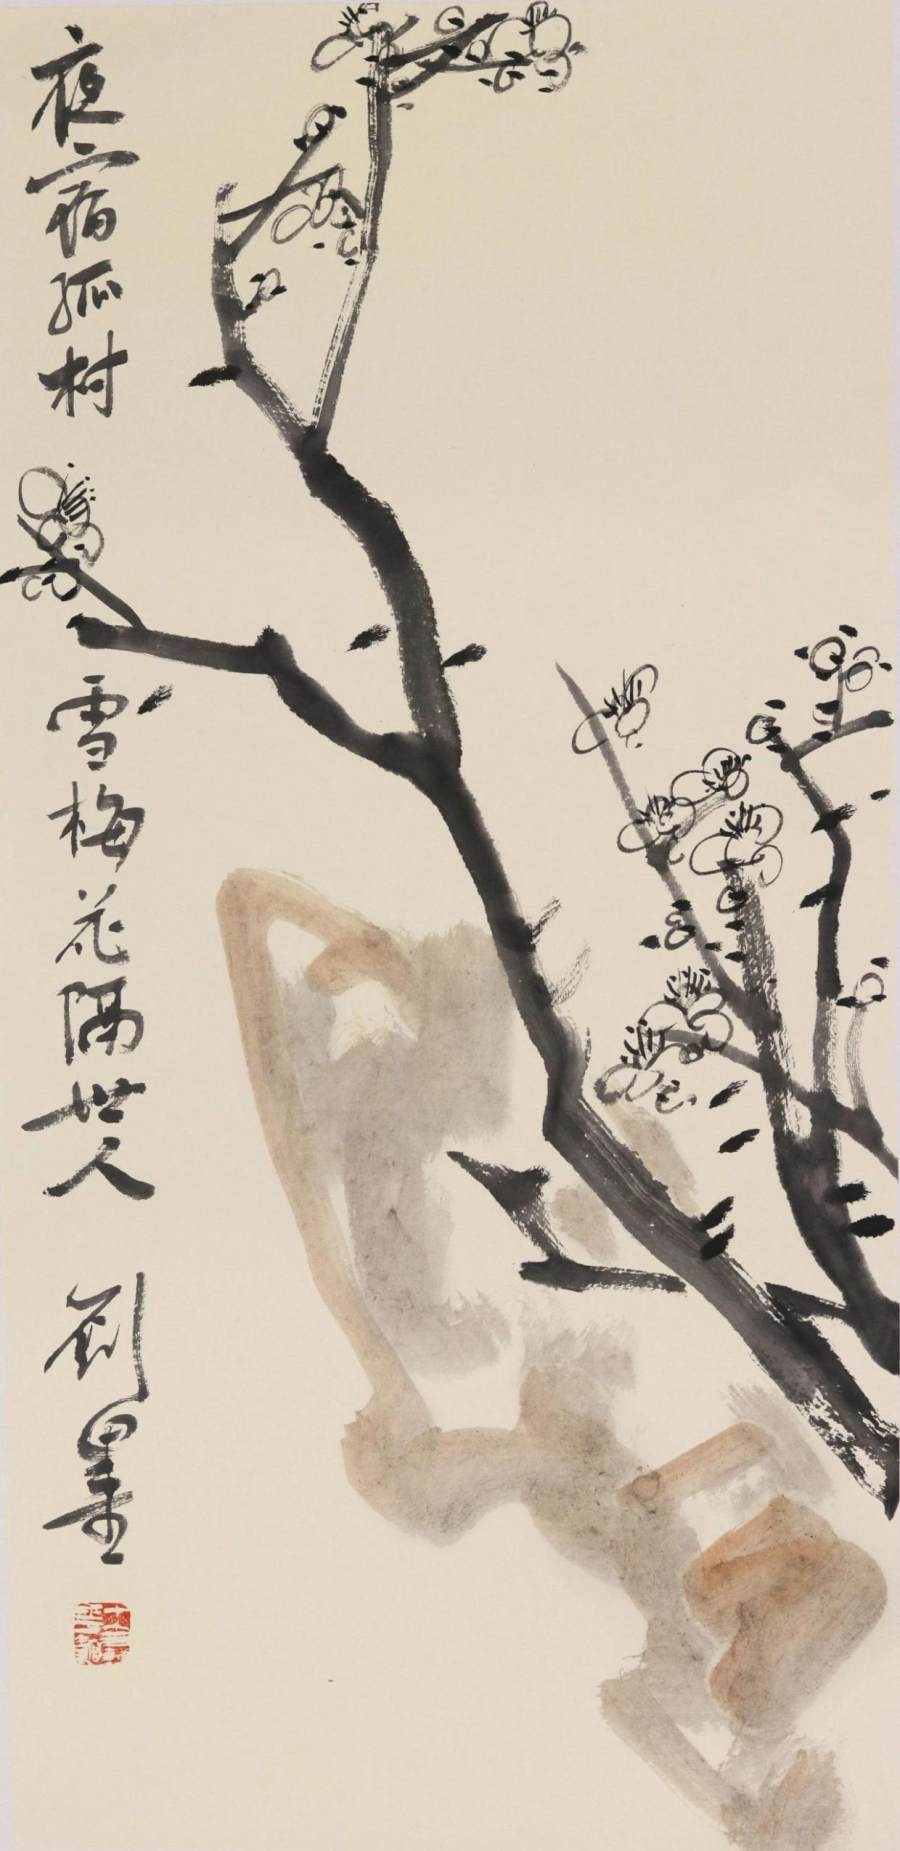 夜宿孤村
雪梅花隔世人
劉墨